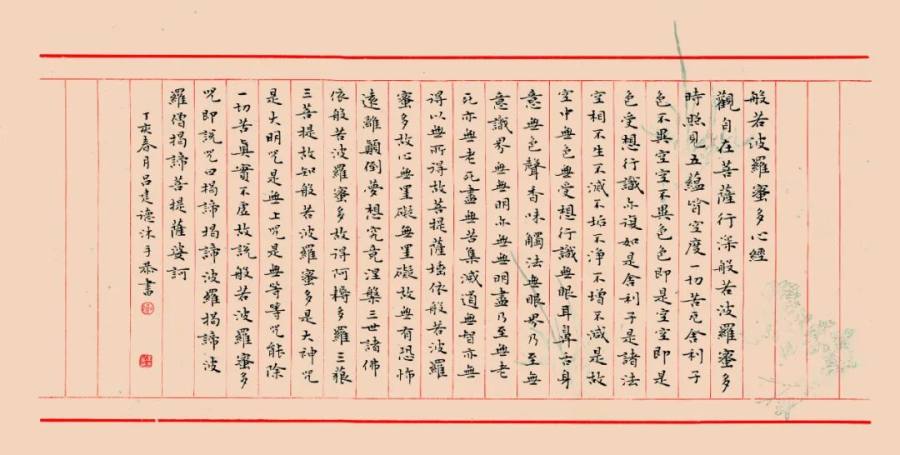 般若波羅蜜多心經
觀自在菩薩行深般若波羅蜜多
時照見五蘊皆空度一切苦厄舍利子
色不異空空不異色色即是空空即是
色受想行識亦復如是舍利子是諸法
空相不生不滅不垢不淨不增不減是故
空中無色無受想行識無眼耳鼻舌身
意無色聲香味觸法無眼界乃至無
意識界無無明亦無無明盡乃至無老
死亦無老死盡無苦集滅道無智亦無
得以無所得故菩提薩埵依般若波羅
蜜多故心無罣礙無罣礙故無有恐怖
遠離顛倒夢想究竟涅槃三世諸佛
依般若波羅蜜多故得阿耨多羅三藐
三菩提故知般若波羅蜜多是大神咒
是大明咒是無上咒是無等等咒能除
一切苦真實不虛故說般若波羅蜜多
咒即說咒曰揭諦揭諦波羅揭諦波
羅僧揭諦菩提薩婆訶
丁亥春月呂建德沐手恭書